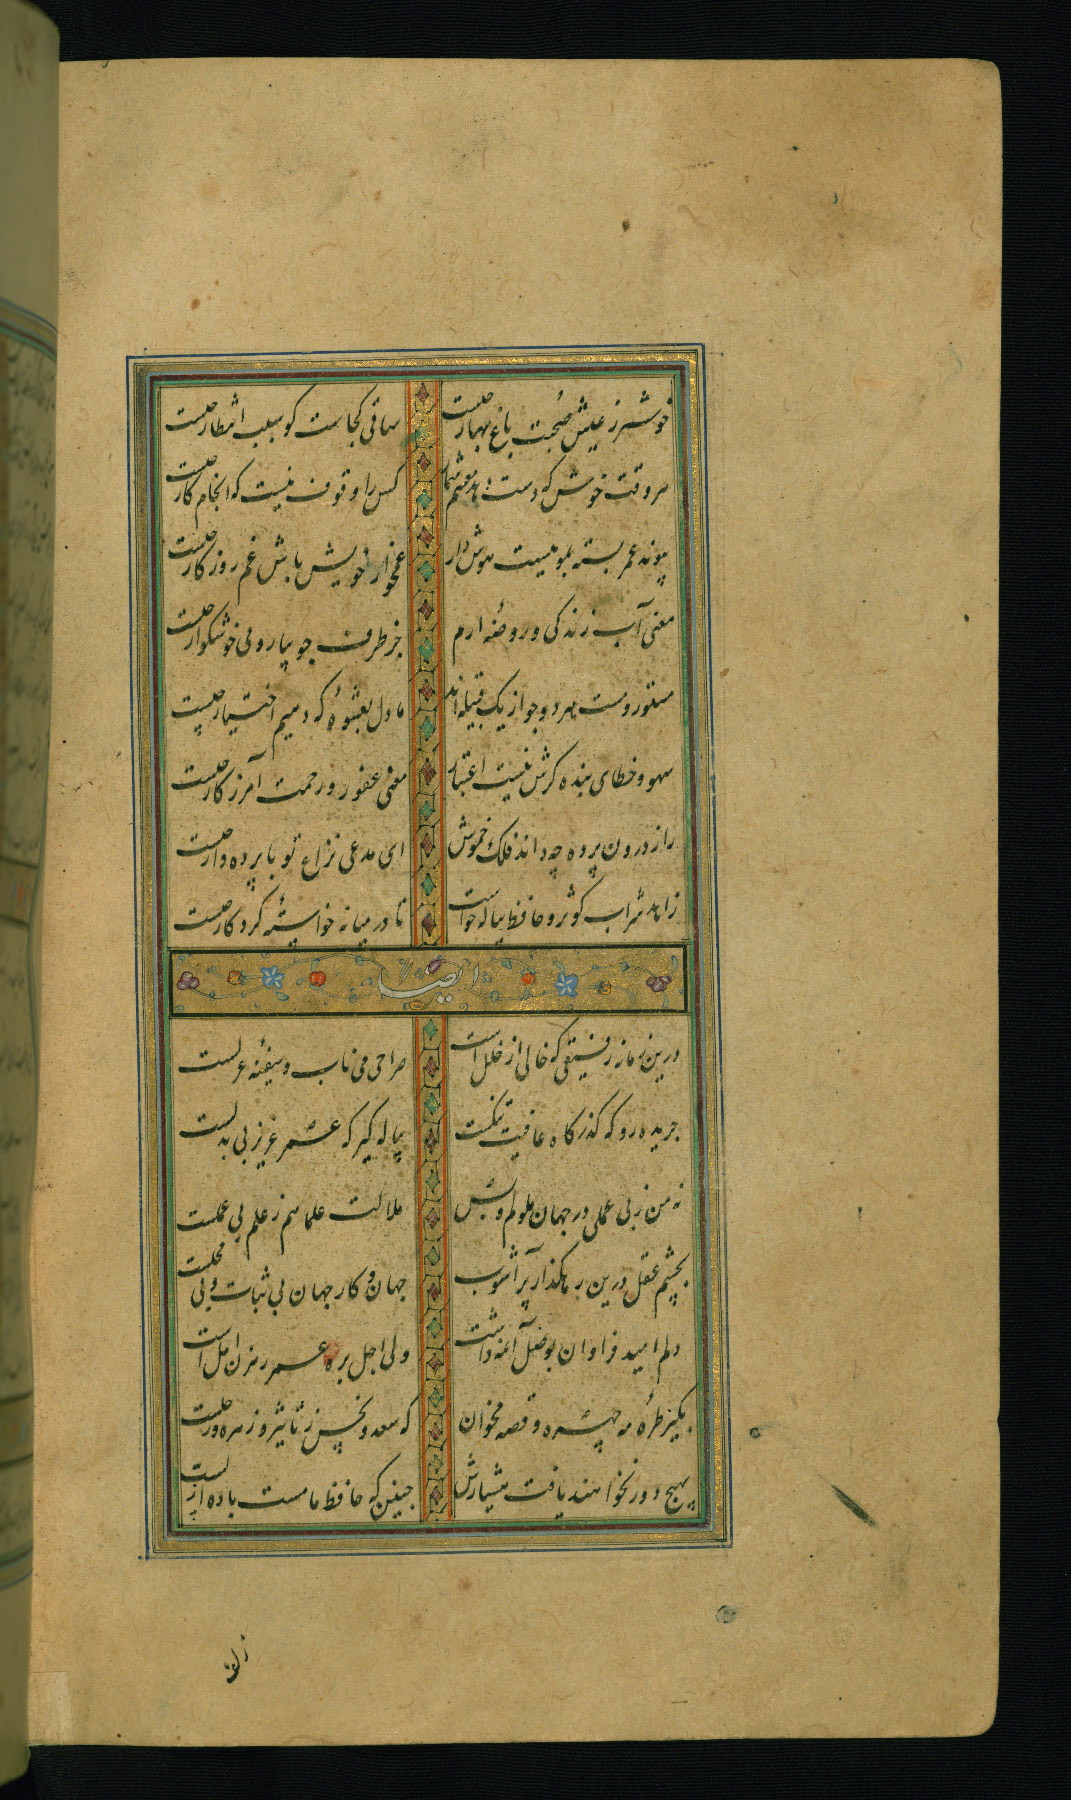 خوشتر ز عیش صحبت باغ بهار چیست
ساقی کجاست کو سبب انتظار چیست
هر وقت خوش که دست دهد مغتنم شمار
کس را وقوف نیست که انجام کار چیست
پیوند عمر بسته بموییست هوش دار
غمخوار خویش باش غم روزکار چیست
معنی آب زندکی و روضه ارم
جز طرف جویبار و می خوشکوار چیست
مستور و مست هر دو چو از یک قبیله اند
ما دل بعشوه که دهیم اختیار چیست
سهو و خطای بنده کرش نیست اعتبار
معنی عفو و رحمت آمرزکار چیست
راز درون پرده چه داند فلک خموش
ای مدعی نزاع تو با پرده دار چیست
زاهد شراب کوثر و حافظ پیاله خواست
تا در میانه خواسته کردکار چیست
ایضا
درین زمانه رفیقی که خالی از خلل است
صراحی می ناب و سفینه غزلست
جریده رو که کذرکاه عافیت تنکست
پیاله کیر که عمر عزیز بی بدلست
نه من ز بی عملی در جهان ملولم و بس
ملالت علما هم ز علم بی عملست
بچشم عقل درین رهکذار پر آشوب
جهان و کار جهان بی ثبات و بی محلست
دلم امید فراوان بوصل داشت
ولی اجل بره عمر رهزن امل است
بکیر طره مه چهره و قصه مخوان
که سعد و نحس ز تاثیر زهره و زحلست
بهیچ دور نخواهند یافت هشیارش
چنین که حافظ ما مست باده ازلست